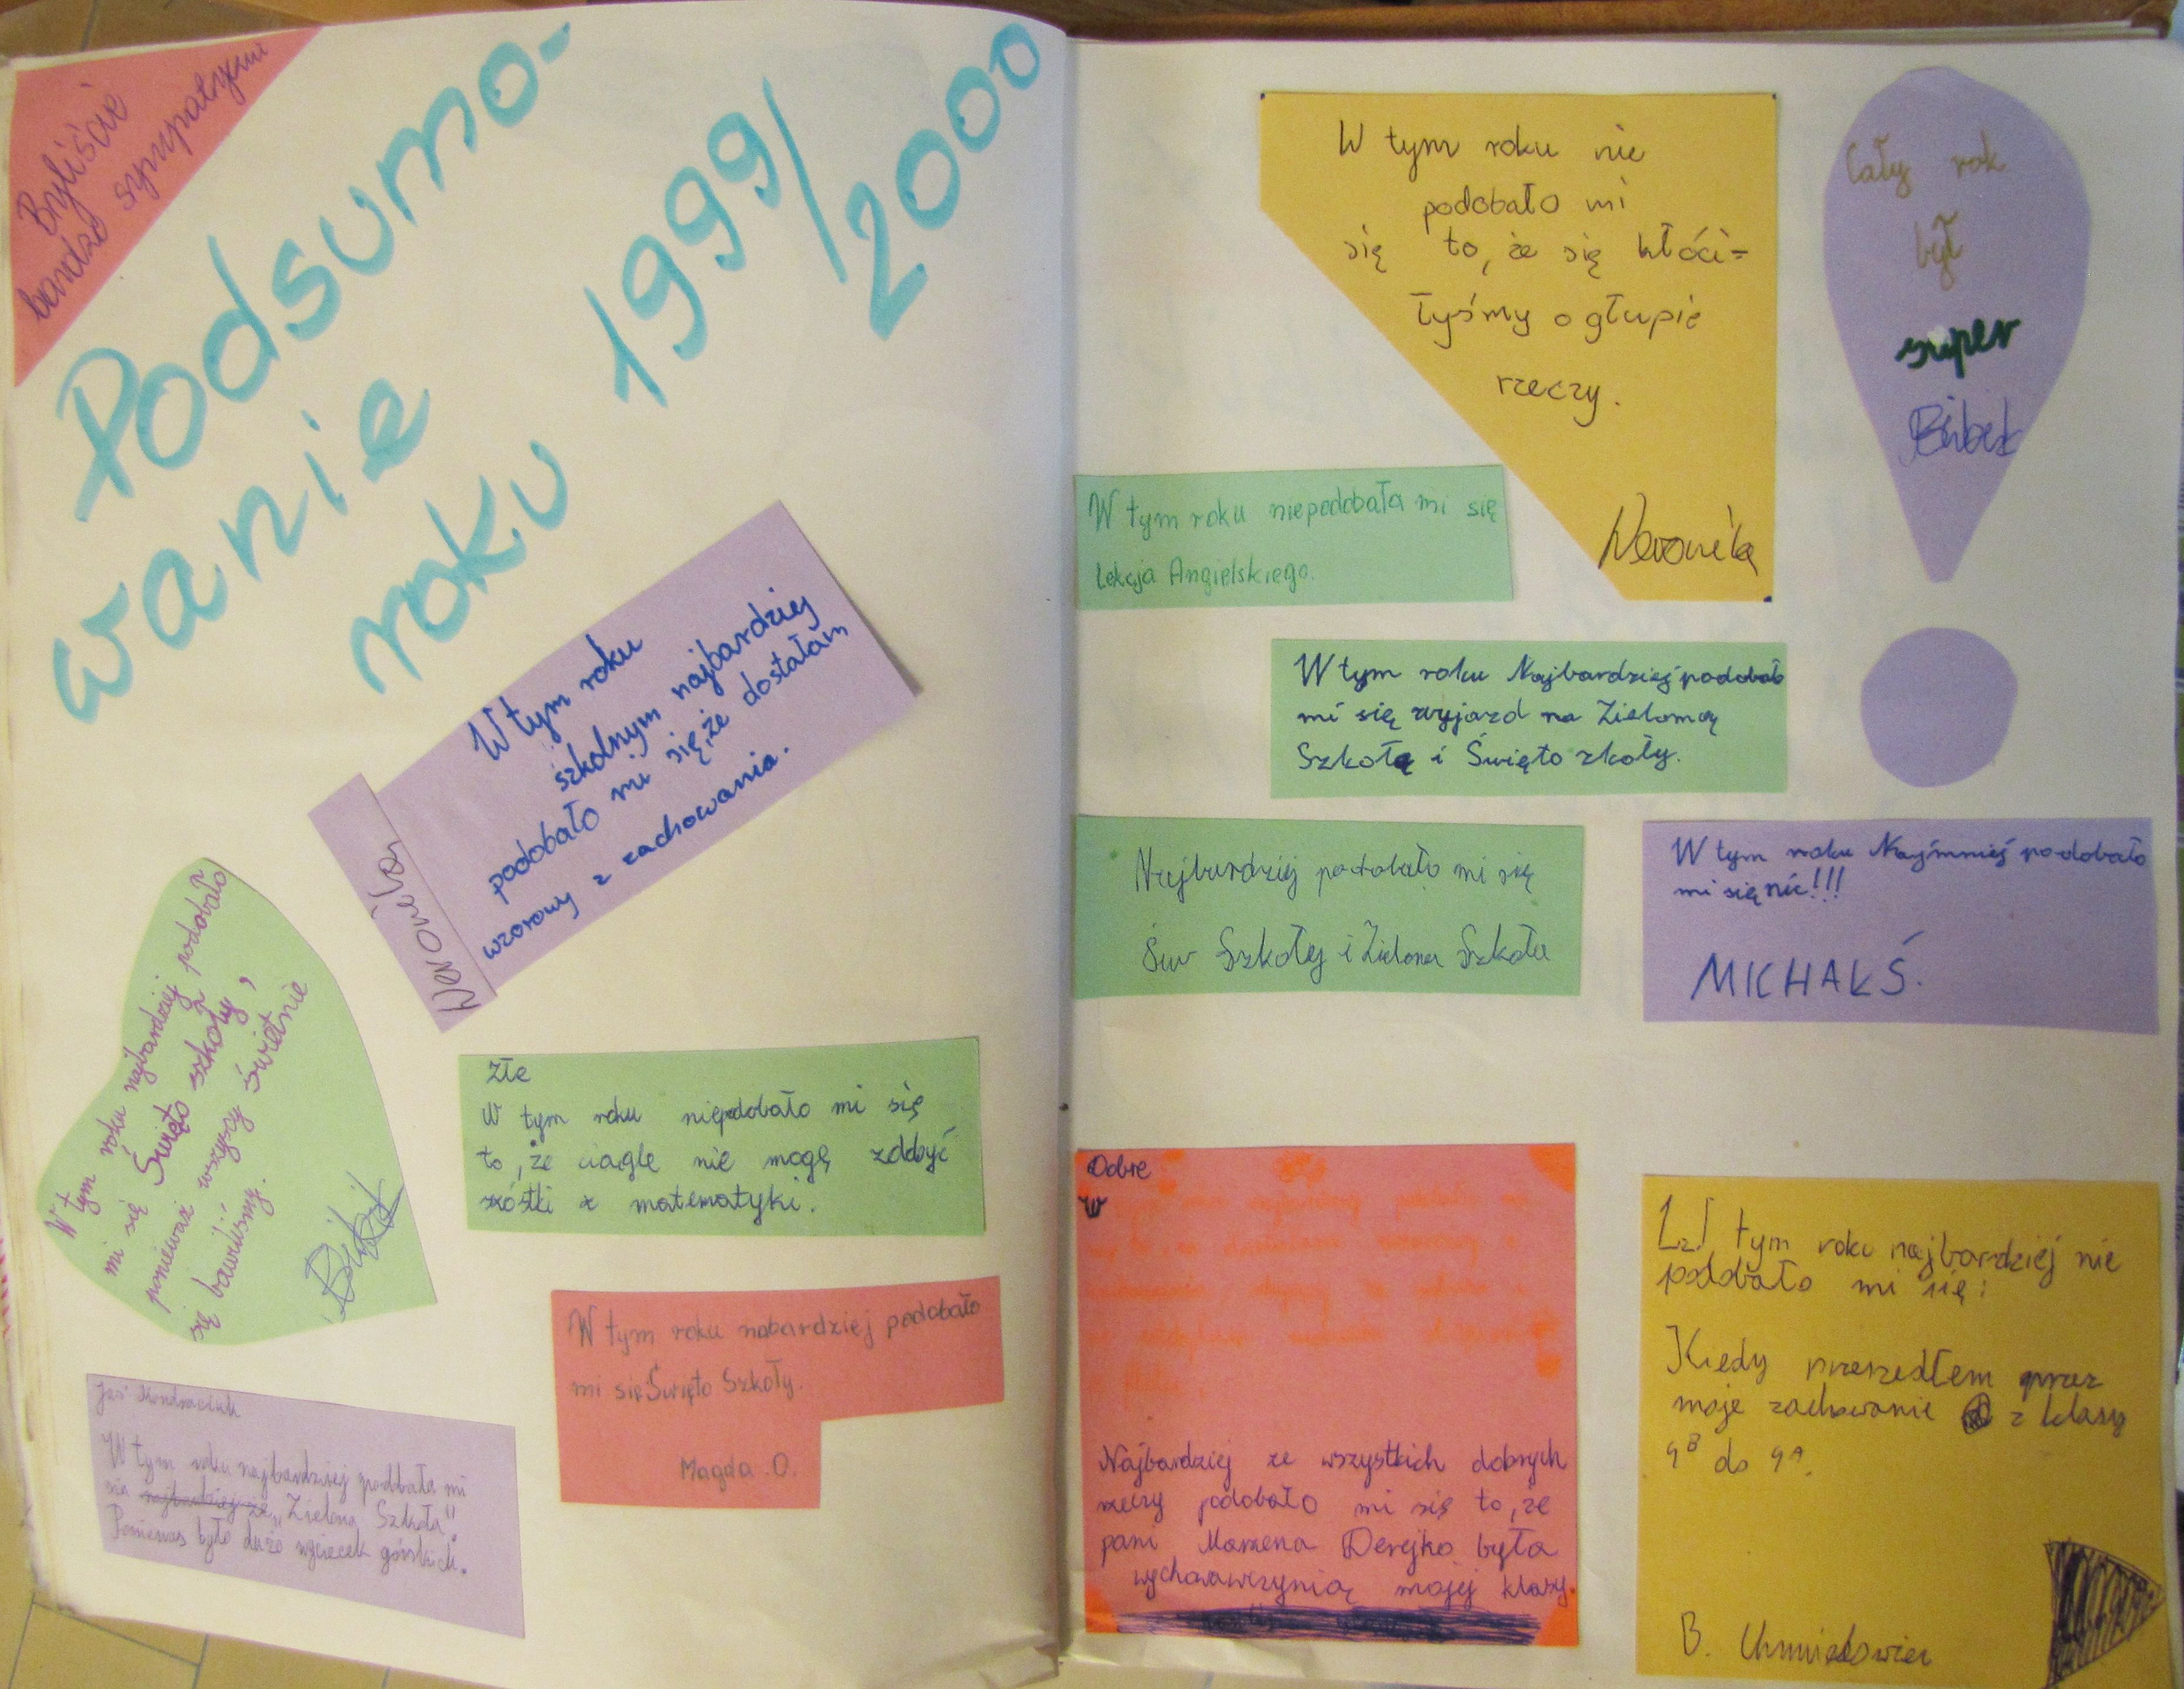 Byliście
bardzo sympatyczni
Podsumo-
wanie
roku 1999/
2000
W tym roku
szkolnym najbardziej
podobało mi się, że dostałam
wzorowy z zachowania.
Weronika
W tym roku najbardziej podobało
mi się Święto szkoły,
ponieważ wszyscy świetnie
się bawiliśmy.
złe
W tym roku niepdobało mi się
to, że ciągle nie mogę zdobyć
szóstki z matematyki.
W tym roku nabardziej podobało
mi się Święto Szkoły.
Magda .O.
Jaś
W tym roku najbardziej podobała mi
sie najbardziej że „Zielona Szkoła".
Poniewas było dużo wycieczek górskich.
W tym roku nie
podobało mi
się to, że się kłóci=
łyśmy o głupie
rzeczy.
Weronika
Cały rok
był
super
W tym roku niepodobała mi się
Lekcja Angielskiego.
W tym roku Najbardziej podobał
mi się wyjazd na Zieloną
Szkołę i Święto zkoły.
Najbardziej podobało mi się
Św Szkołej i Zielona Szkoła
W tym roku Najmniej podobało
mi się nic!!!
MICHAŁ Ś.
Dobre
W
Najbardziej ze wszystkich dobrych
rzeczy podobało mi się to, że
pani Marzena Derejko była
wychowawczynią mojej klasy.
W tym roku najbardziej nie
podobało mi się:
Kiedy przeszedłem przez
moje zachowanie z klasy
4B do 4A.
B.